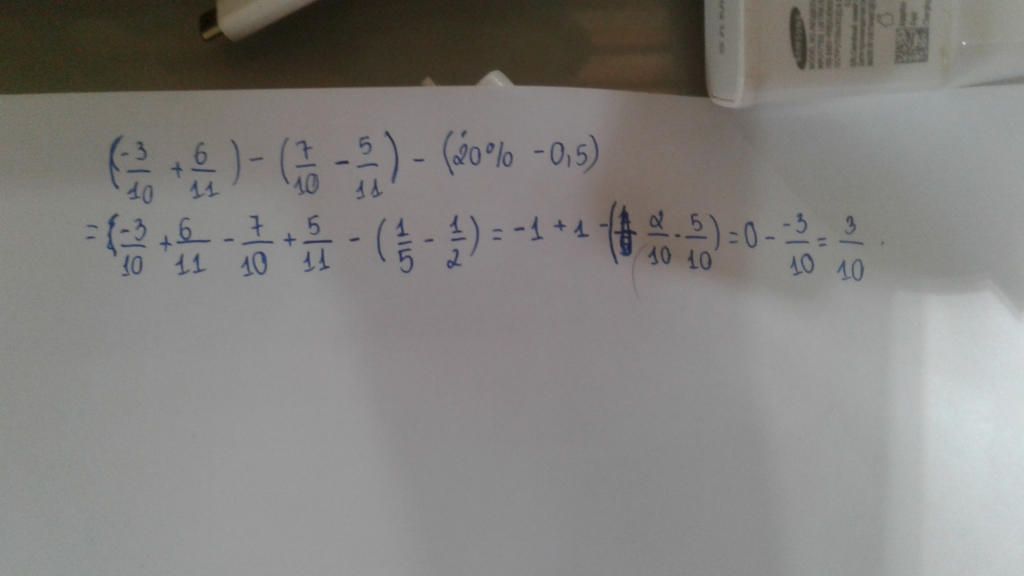 SAMSUNG
(-3/10 + 6/11) - (7/10 - 5/11) - (20% - 0,5)
= (-3/10 + 6/11 - 7/10 + 5/11 - (1/5 - 1/2) = -1 + 1 - (2/10 - 5/10) = 0 - -3/10 = 3/10 .